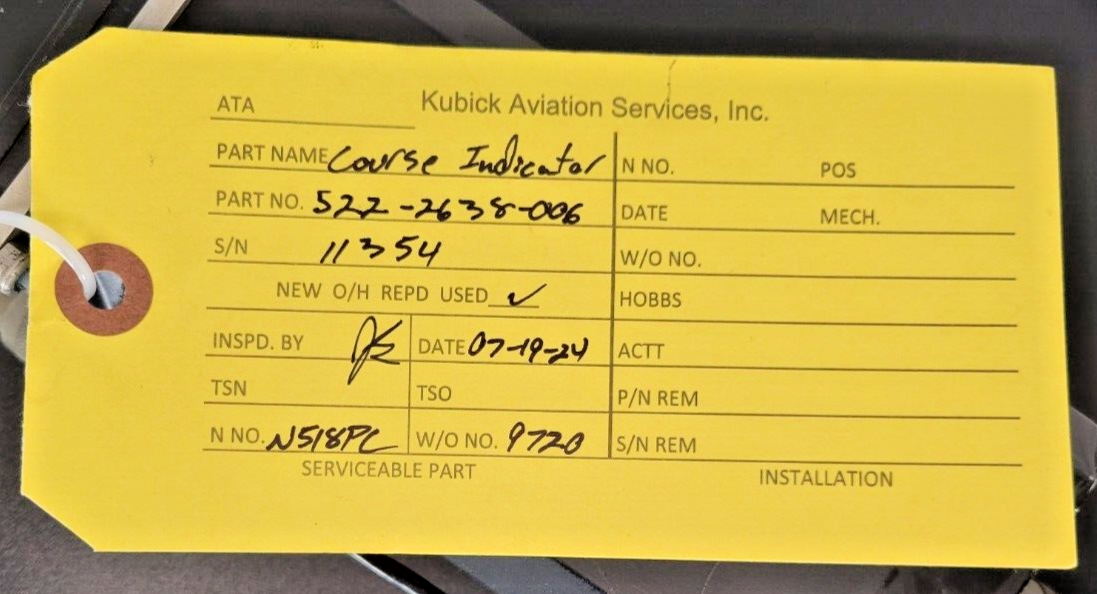 ATA Kubick Aviation Services, Inc.
PART NAME Course Indicator N NO. POS
PART NO. 522-2638-006 DATE MECH.
S/N 11354 W/O NO.
NEW O/H REPD USED ✓ HOBBS
INSPD. BY DATE 07-19-24 ACTT
TSN TSO P/N REM
N NO. N518PC W/O NO. 9720 S/N REM
SERVICEABLE PART INSTALLATION